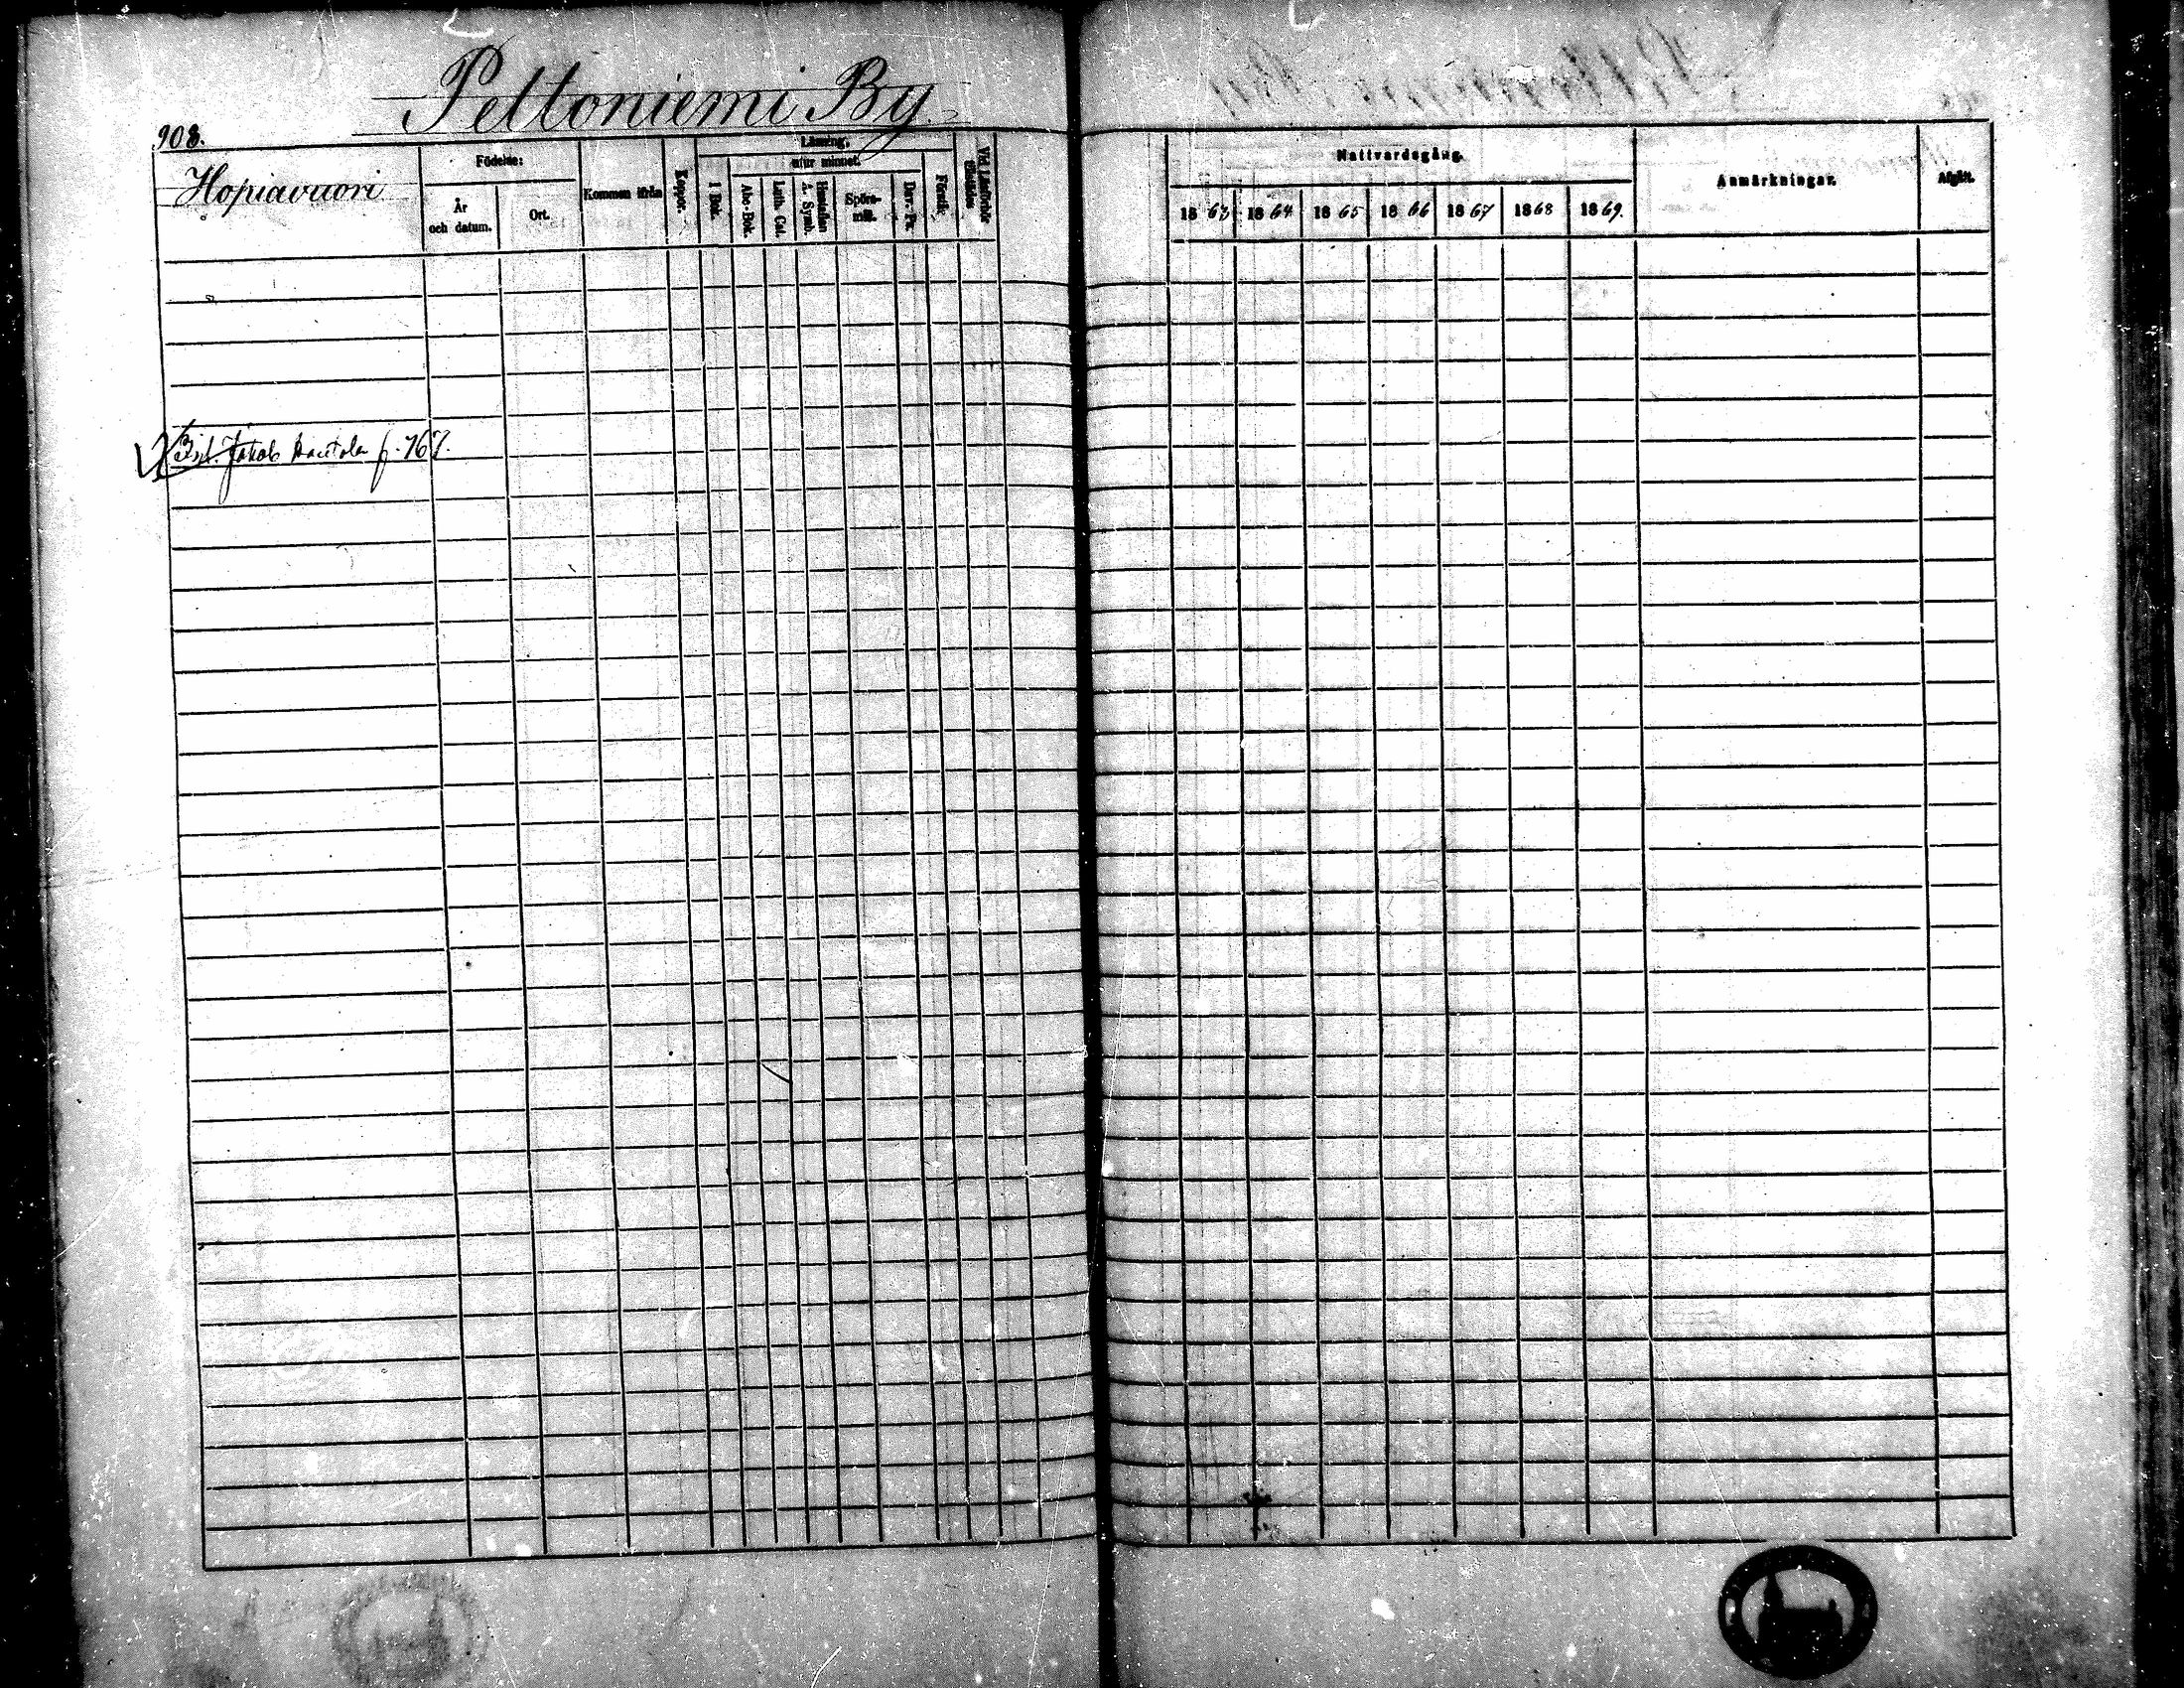 Peltoniemi By.
908.
Hopiavuori
Födelse:
År
och datum.
Ort.
Kommen ifrån
Koppor.
Läsning,
utur minnet.
I Bok.
Abc-Bok.
Luth. Cat.
Hustaflan
A. Symb.
Spörs-
mål.
Dav. Ps.
Förstår
Vid Läsförhör
Jakob f. 767.
Nattvardsgång.
1863 1864 1865 1866 1867 1868 1869.
Anmärkningar.
Afgått.